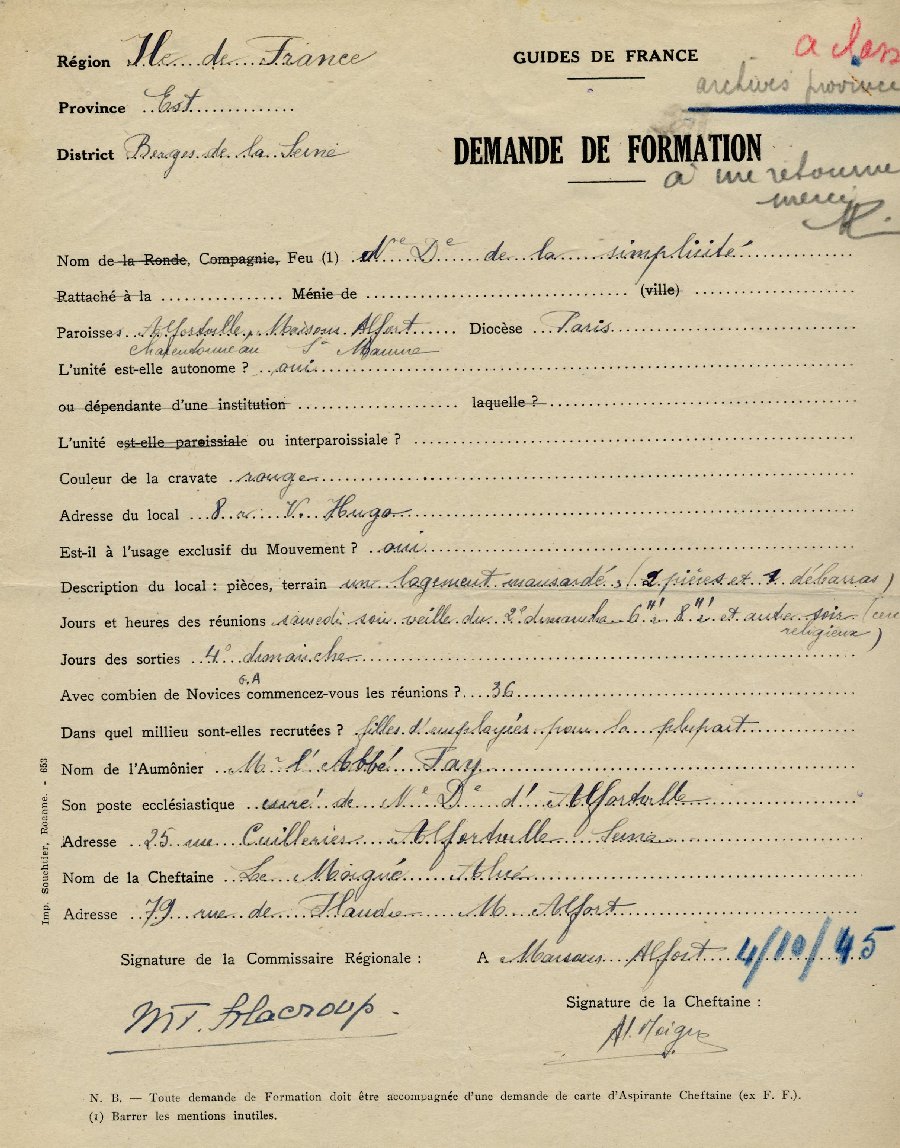 Région Ile de France
GUIDES DE FRANCE
a class
archives province
Province Est
District Berges de la Seine
DEMANDE DE FORMATION
à me retourner
merci
Nom de la Ronde, Compagnie, Feu (1) Nre De de la simplicité
Rattaché à la Ménie de (ville)
Paroisses Alfortville, Maisons Alfort Diocèse Paris
Charentonneau
L'unité est-elle autonome ? oui
ou dépendante d'une institution laquelle ?
L'unité est-elle paroissiale ou interparoissiale ?
Couleur de la cravate rouge
Adresse du local 8 r V. Hugo
Est-il à l'usage exclusif du Mouvement ? oui
Description du local : pièces, terrain un logement mansardé, (2 pièces et 1 débarras)
Jours et heures des réunions samedi soir veille du 2e dimanche 6h½ 8h½ et autre soir (
religieux)
Jours des sorties 4e dimanche
G.A
Avec combien de Novices commencez-vous les réunions ? 36
Dans quel millieu sont-elles recrutées ? filles d'employées pour la plupart
Nom de l'Aumônier Mr l'Abbé Fay
Son poste ecclésiastique curé de Ne De d'Alfortville
Adresse 25 rue Cuilleries Alfortville Seine
Nom de la Cheftaine Le Moigné
Adresse 79 rue de Flandre M. Alfort
Imp. Souchier, Roanne. - 653
Signature de la Commissaire Régionale :
A Maisons Alfort 4/10/45
Signature de la Cheftaine :
N. B. — Toute demande de Formation doit être accompagnée d'une demande de carte d'Aspirante Cheftaine (ex F. F.).
(1) Barrer les mentions inutiles.